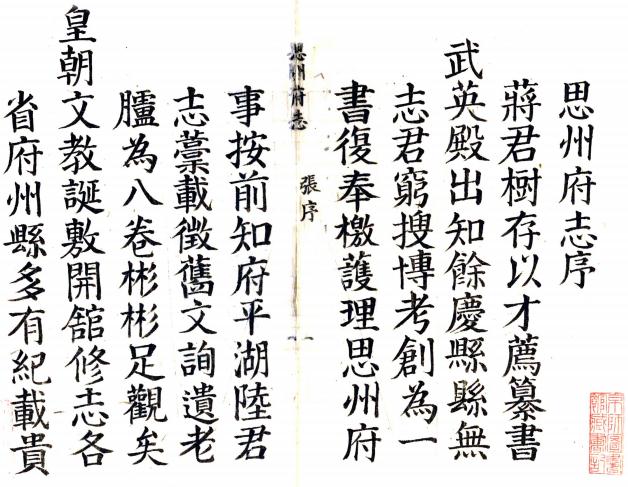 思州府志序
蔣君樹存以才薦纂書
武英殿出知餘慶縣縣無
志君窮搜博考創為一
書復奉檄護理思州府
思州府志
張序
一
事按前知府平湖陸君
志藁載徵舊文詢遺老
臚為八卷彬彬足觀矣
皇朝文教誕敷開舘修志各
省府州縣多有紀載貴